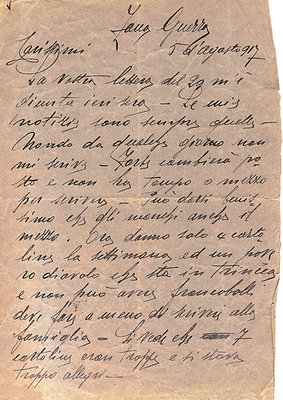 Zona Guerra
Carissimi 5 d'agosto 917
La vostra lettera del 29 m'è
giunta ieri sera - Le mie
notizie sono sempre quelle -
Nondo da qualche giorno non
mi scrive - Forse cambierà po
sto e non ha tempo o mezzo
per scrivere - Può darsi benis
simo che gli manchi anche il
mezzo. Ora danno solo 2 carto
line la settimana ed un pove
ro diavolo che sta in trincea
e non può avere francobolli
deve fare a meno di scrivere alla
famiglia - Si vede che 7
cartoline eran troppe e si stava
troppo allegri -